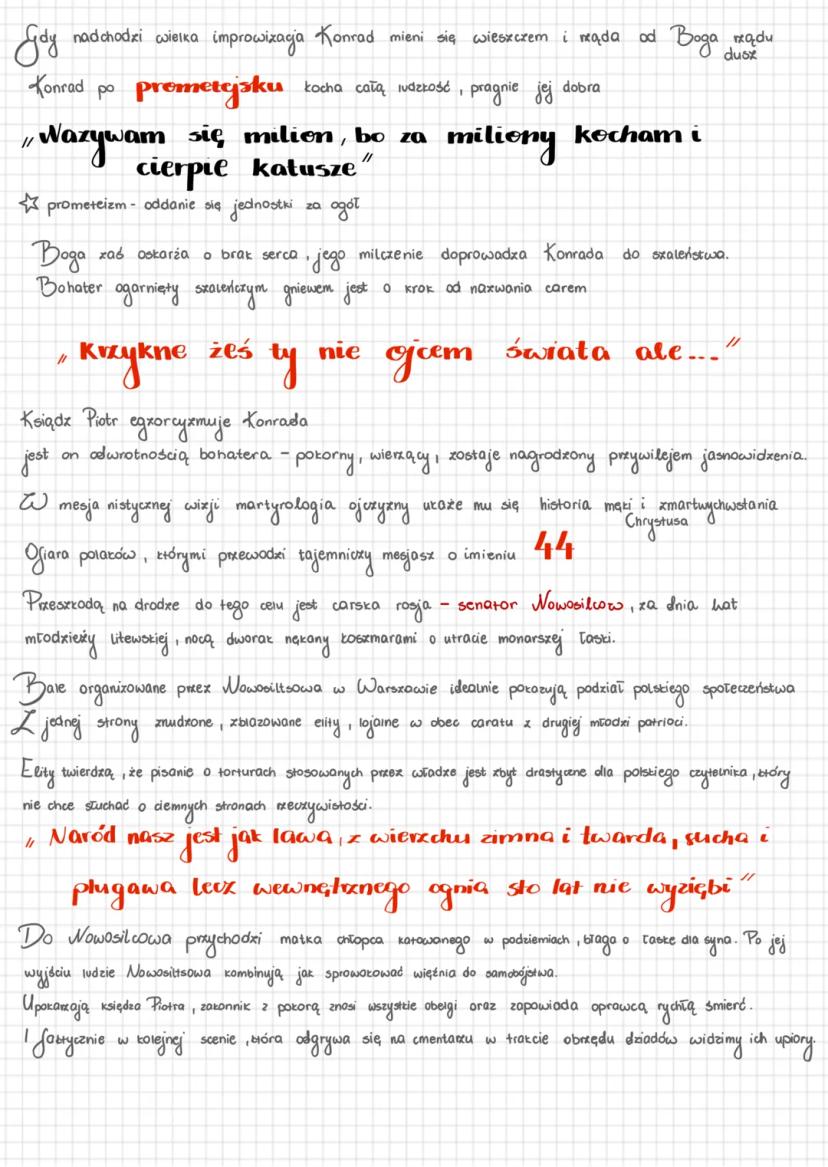 Gdy nadchodzi wielka improwizacja Konrad mieni się wieszczem i rząda od Boga rządu
dusz
Konrad po prometejsku kocha całą ludzkość, pragnie jej dobra
„Nazywam się milion, bo za miliony kocham i
cierpię katusze”
☆ prometeizm - oddanie się jednostki za ogół
Boga zaś oskarża o brak serca, jego milczenie doprowadza Konrada do szaleństwa.
Bohater ogarnięty szaleńczym gniewem jest o krok od nazwania carem
„Krzykne żeś ty nie ojcem świata ale...”
Ksiądz Piotr egzorcyzmuje Konrada
jest on odwrotnością bohatera - pokorny, wierzący, zostaje nagrodzony przywilejem jasnowidzenia.
W mesja nistycznej wizji martyrologia ojczyzny ukaże mu się historia męki i zmartwychwstania
Chrystusa
Ofiara polaków, którymi przewodzi tajemniczy mesjasz o imieniu 44
Przeszkodą na drodze do tego celu jest carska rosja - senator Nowosilcow, za dnia kat
młodzieży litewskiej, nocą dworak nękany koszmarami o utracie monarszej łaski.
Bale organizowane przez Nowosiltsowa w Warszawie idealnie pokazują podział polskiego społeczeństwa
Z jednej strony znudzone, zblazowane elity, lojalne w obec caratu z drugiej młodzi patrioci.
Elity twierdzą, że pisanie o torturach stosowanych przez władze jest zbyt drastyczne dla polskiego czytelnika, który
nie chce słuchać o ciemnych stronach rzeczywistości.
„Naród nasz jest jak lawa, z wierzchu zimna i twarda, sucha i
plugawa lecz wewnętrznego ognia sto lat nie wyziębi”
Do Nowosilcowa przychodzi matka chłopca katowanego w podziemiach, błaga o łaskę dla syna. Po jej
wyjściu ludzie Nowosiltsowa kombinują jak sprowokować więźnia do samobójstwa.
Upokarzają księdza Piotra, zakonnik z pokorą znosi wszystkie obelgi oraz zapowiada oprawcą rychłą śmierć.
I faktycznie w kolejnej scenie, która odgrywa się na cmentarzu w trakcie obrzędu dziadów widzimy ich upiory.